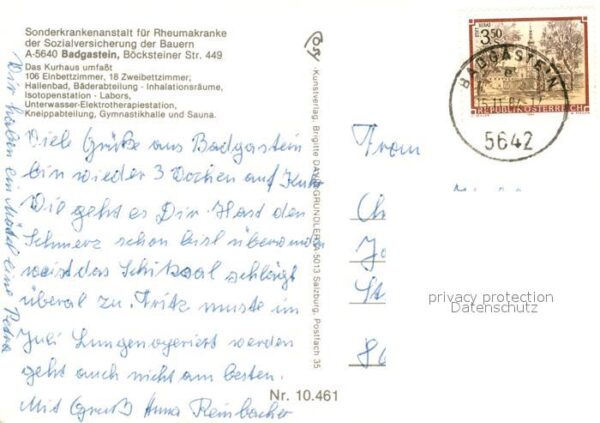 Sonderkrankenanstalt für Rheumakranke
der Sozialversicherung der Bauern
A-5640 Badgastein, Böcksteiner Str. 449
Das Kurhaus umfaßt
106 Einbettzimmer, 18 Zweibettzimmer;
Hallenbad, Bäderabteilung - Inhalationsräume,
Isotopenstation - Labors,
Unterwasser-Elektrotherapiestation,
Kneippabteilung, Gymnastikhalle und Sauna.
Viele Grüße aus Badgastein
bin wieder 3 Wochen auf Kur
Wie geht es Dir. Hast den
Schmerz schon bisl überwunden
weist das Schiksaal schlägt
überal zu. Fritz muste im
Juli Lungenoperiert werden
geht auch nicht am besten.
Mit Gruß Anna Reinbacher
Wir haben ein Mädel eine Petra
Kunstverlag: Brigitte 5013 Salzburg, Postfach 35
Nr. 10.461
3.50
REPUBLIK ÖSTERREICH
BADGASTEIN
5642
From
privacy protection
Datenschutz